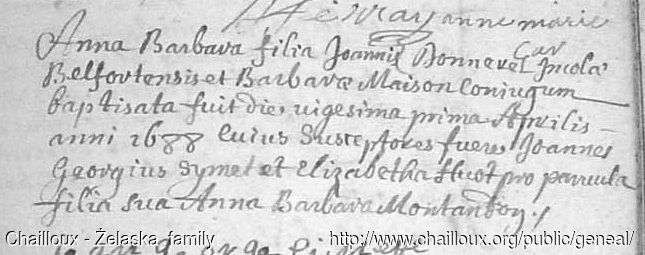 anne marie
Anna Barbara filia Joannis Donneret Incolæ
Belfortensis et Barbaræ Maison Coniugum
baptisata fuit die vigesima prima Aprilis
anni 1688 Cuius Susceptores fuere Joannes
Georgius Symet et Elizabetha Huot pro parvula
filia sua Anna Barbara Montandon
Chailloux - Żelaska family
http://www.chailloux.org/public/geneal/